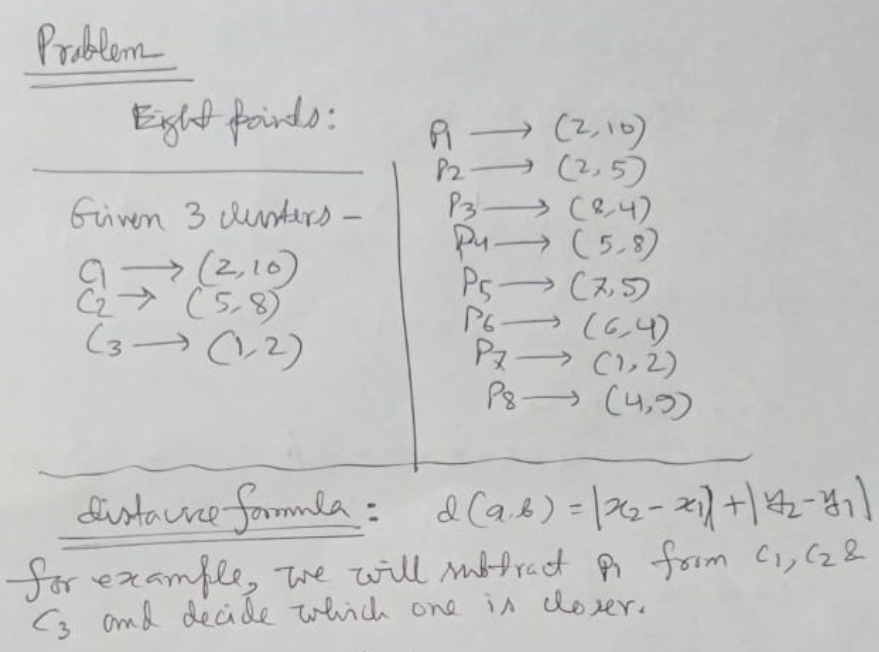 Problem
Eight points:
Given 3 clusters -
C1 → (2,10)
C2 → (5,8)
C3 → (1,2)
P1 → (2,10)
P2 → (2,5)
P3 → (8,4)
P4 → (5,8)
P5 → (7,5)
P6 → (6,4)
P7 → (1,2)
P8 → (4,9)
distance formula : d(a,b) = |x2 - x1| + |y2 - y1|
for example, we will subtract P1 from C1, C2 &
C3 and decide which one is closer.